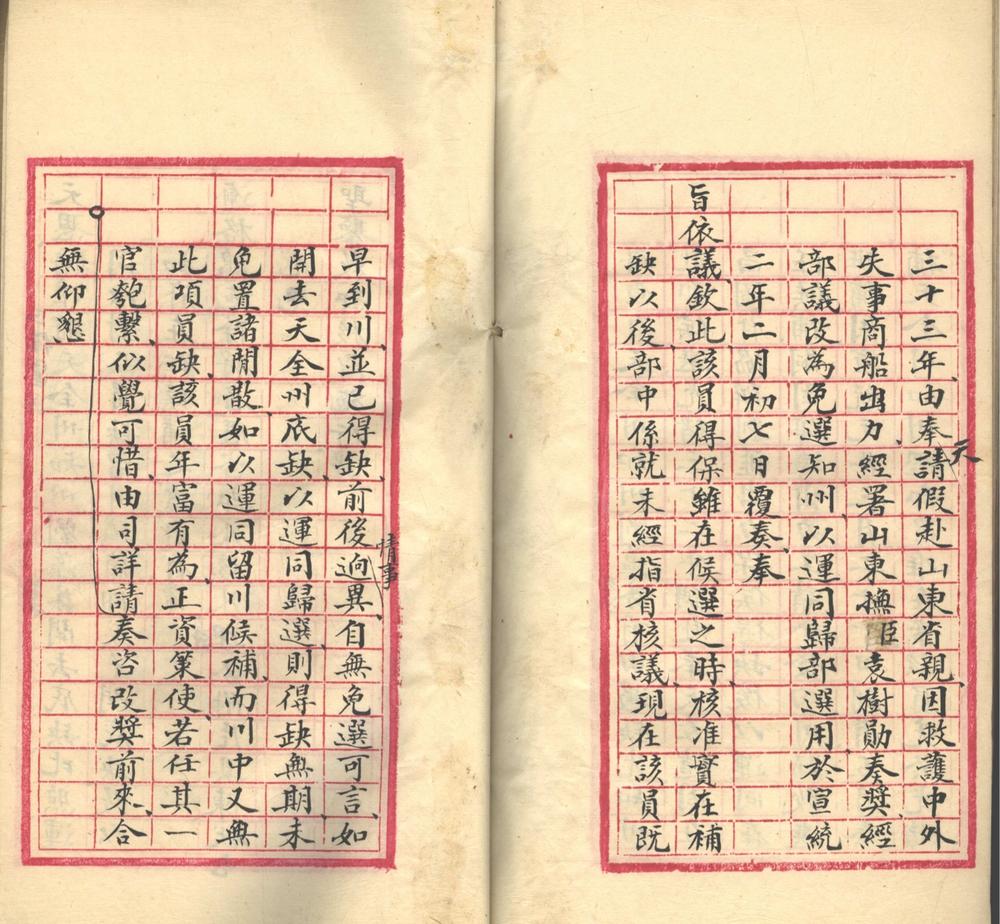 三十三年、由奉天請假赴山東省親、因救護中外
失事商船出力、經署山東撫臣袁樹勛奏獎、經
部議改為免選知州、以運同歸部選用、於宣統
二年二月初七日覆奏、奉
旨依議、欽此、該員得保雖在候選之時、核准實在補
缺以後、部中係就未經指省核議、現在該員既
早到川、並已得缺、前後情事逈異、自無免選可言、如
開去天全州底缺、以運同歸選、則得缺無期、未
免置諸閒散、如以運同留川候補、而川中又無
此項員缺、該員年富有為、正資策使、若任其一
官匏繫、似覺可惜、由司詳請奏咨改獎前來、合
無仰懇